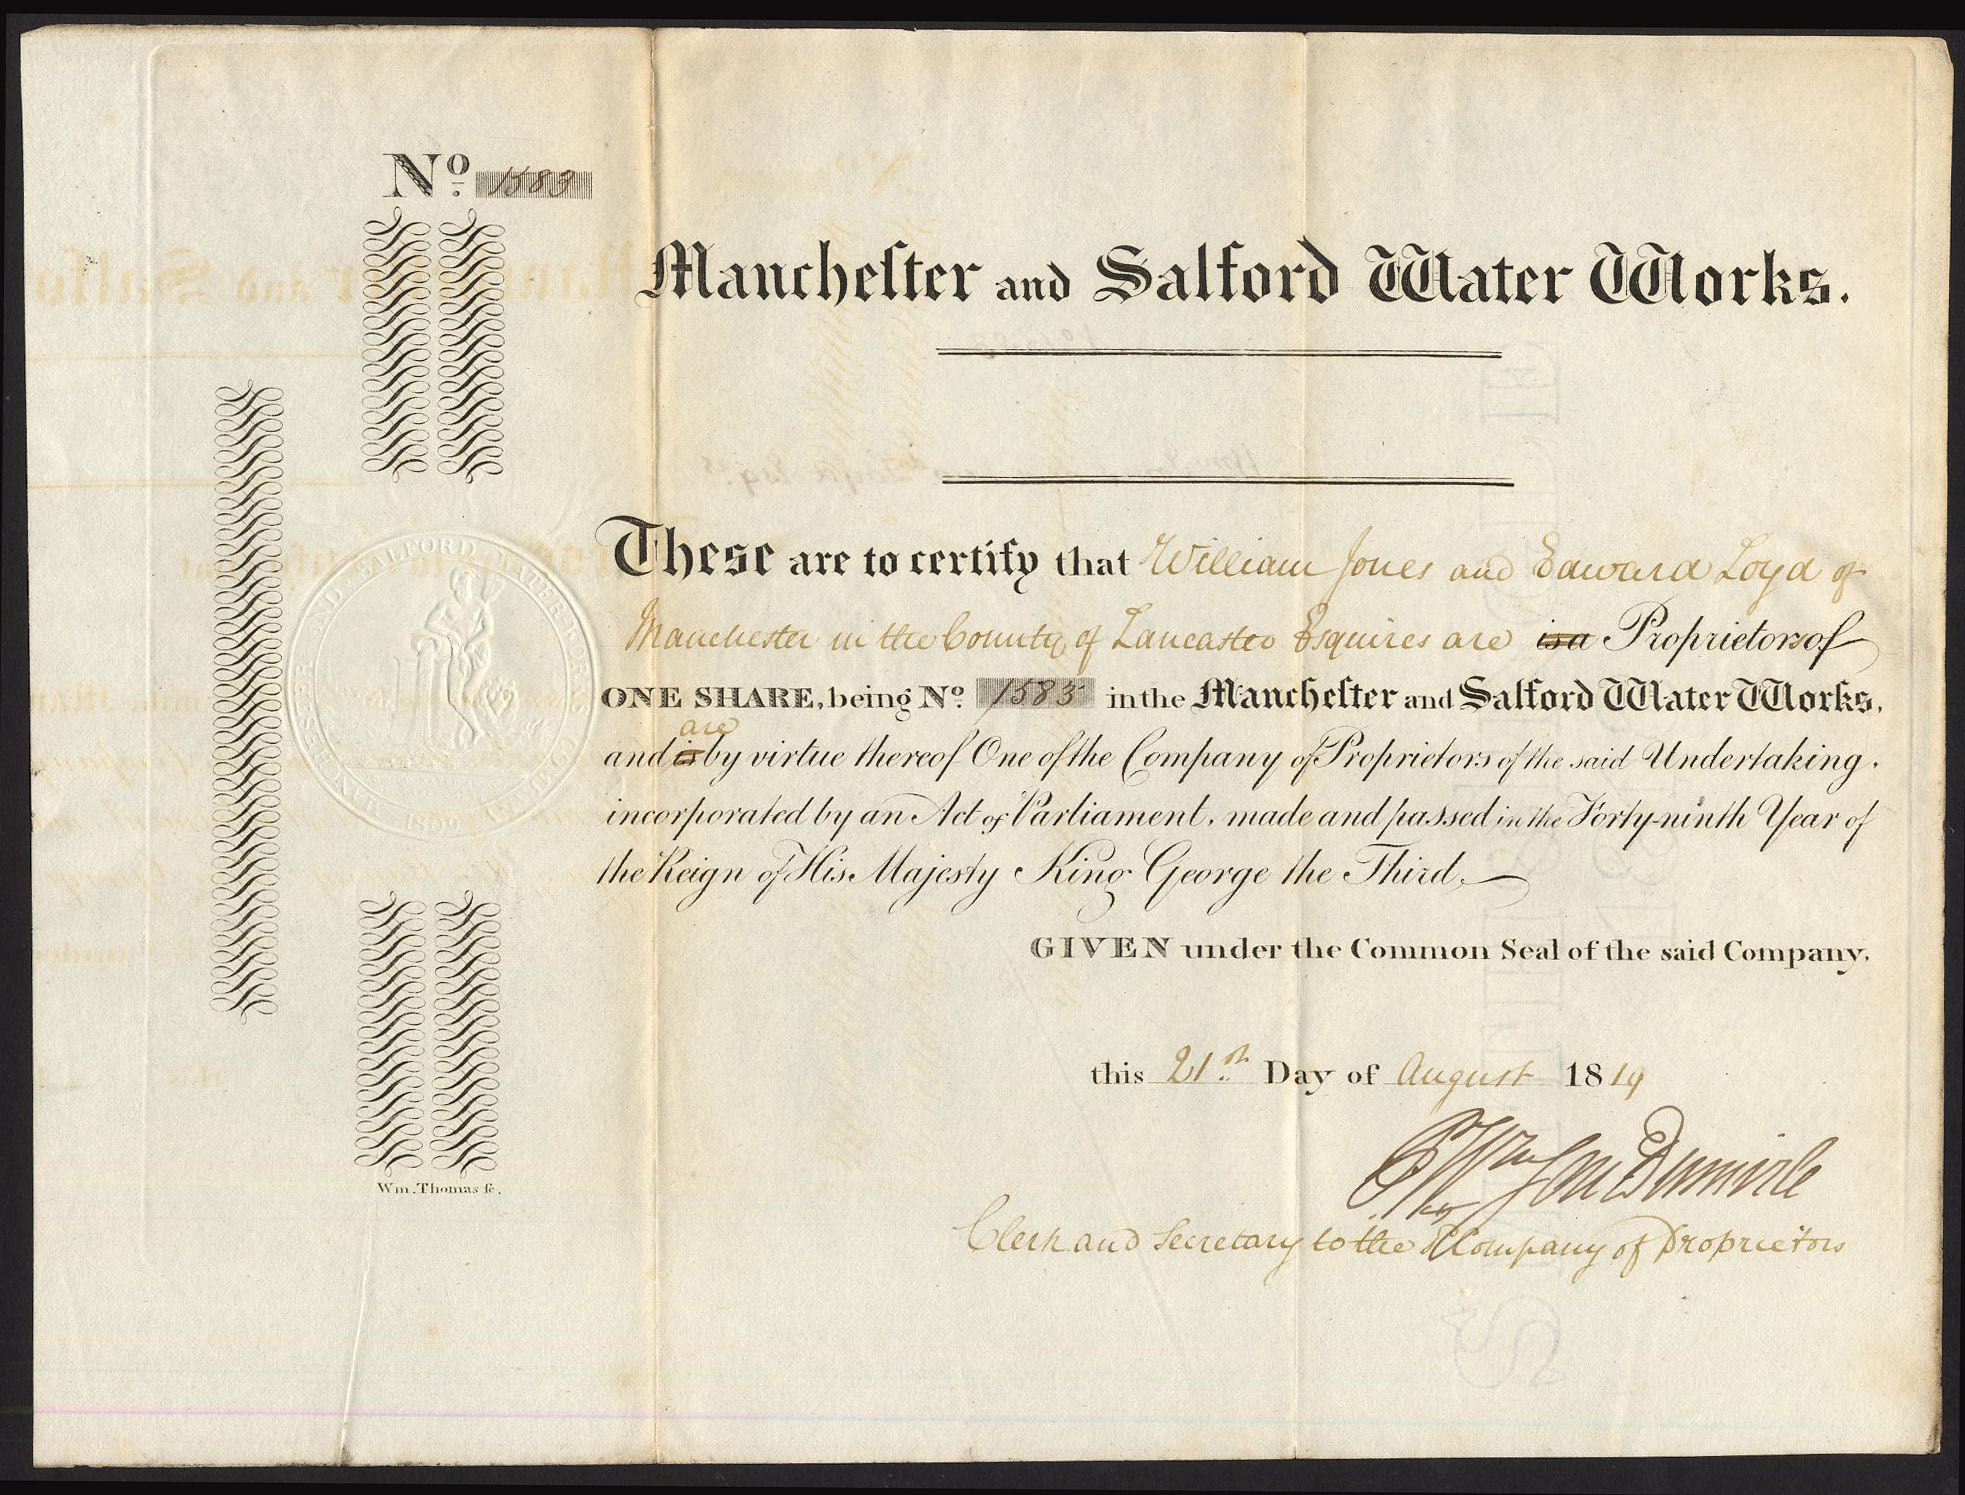 No. 1583
Mancheſter and Salford Water Works.
These are to certify that William Jones and Edward Loyd of
Manchester in the County of Lancaster Esquires are is a Proprietors of
ONE SHARE, being No. 1583 in the Mancheſter and Salford Water Works,
are
and is by virtue thereof One of the Company of Proprietors of the said Undertaking,
incorporated by an Act of Parliament, made and passed in the Forty-ninth Year of
the Reign of His Majesty King George the Third.
GIVEN under the Common Seal of the said Company,
this 21st. Day of August 1819
Clerk and Secretary to the Company of Proprietors
Wm. Thomas fc.
SALFORD WATER WOR
1809